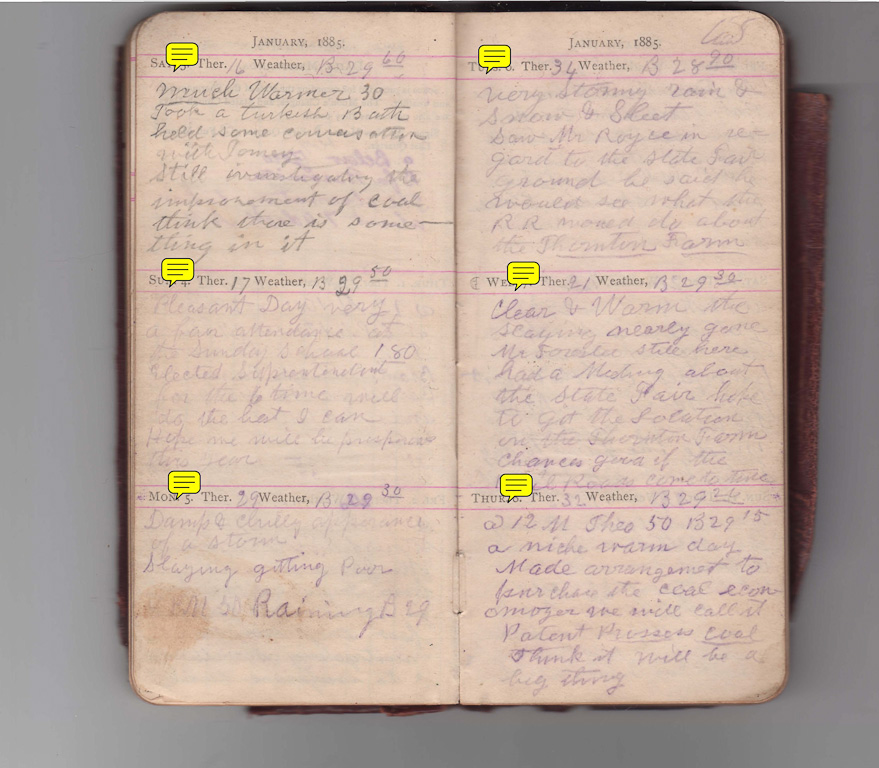 JANUARY, 1885.
Ther. 16 Weather, B 29 60
Much Warmer 30
Took a turkish Bath
held some conversation
with
Still investigating the
improvement of coal
think there is some-
thing in it
Ther. 17 Weather, B 29 50
Pleasant Day very
a fair attendance at
the Sunday School 180
Elected
for the 6 time will
do the best I can
Hope we will be prosperous
this year
MON. 5. Ther. 29 Weather, B 29 30
Damp & chilly apperance
of a storm
Slaying gitting Poor
Raining B 29
JANUARY, 1885.
Ther. 34 Weather, B 28 90
very stormy rain &
Snow & Sleet
Saw Mr Royce in re-
gard to the State Fair
ground he said he
would see what the
R R would do about
the Thornton Farm
Ther. 21 Weather, B 29 30
Clear & Warm the
slaying nearly gone
Mr still here
had a Meeting about
the State Fair hope
to get the Location
on the Thornton Farm
chances good if the
Roads come to time
Ther. 32 Weather, B 29
12 M Theo 50 B 29 15
a niche warm day
Made arrangemet to
purchase the coal econ-
omozer we will call it
Patent Prossess coal
think it will be a
big thing